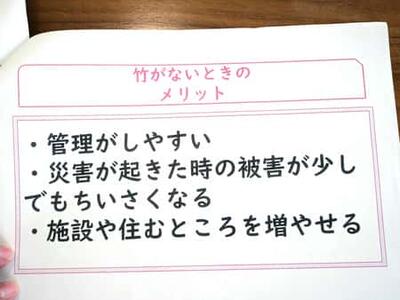 竹がないときの
メリット
・管理がしやすい
・災害が起きた時の被害が少し
でもちいさくなる
・施設や住むところを増やせる